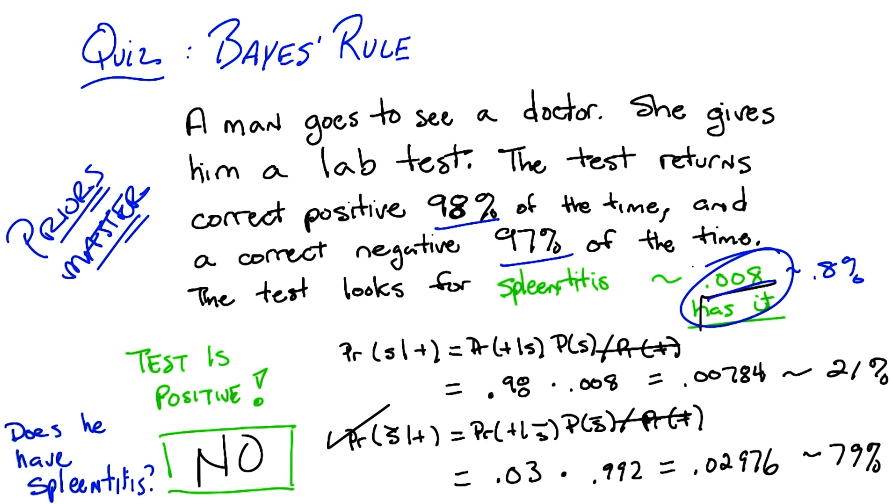 Quiz : BAYES' RULE
A man goes to see a doctor. She gives
him a lab test. The test returns
correct positive 98% of the time, and
a correct negative 97% of the time.
The test looks for spleentitis ~ .008 ~ .8%
has it
PRIORS
MATTER
TEST IS
POSITIVE!
Does he
have
spleentitis?
NO
Pr(s|+) = Pr(+|s) P(s)/Pr(+)
= .98 · .008 = .00784 ~ 21%
✓Pr(s̄|+) = Pr(+|s̄) P(s̄)/Pr(+)
= .03 · .992 = .02976 ~ 79%